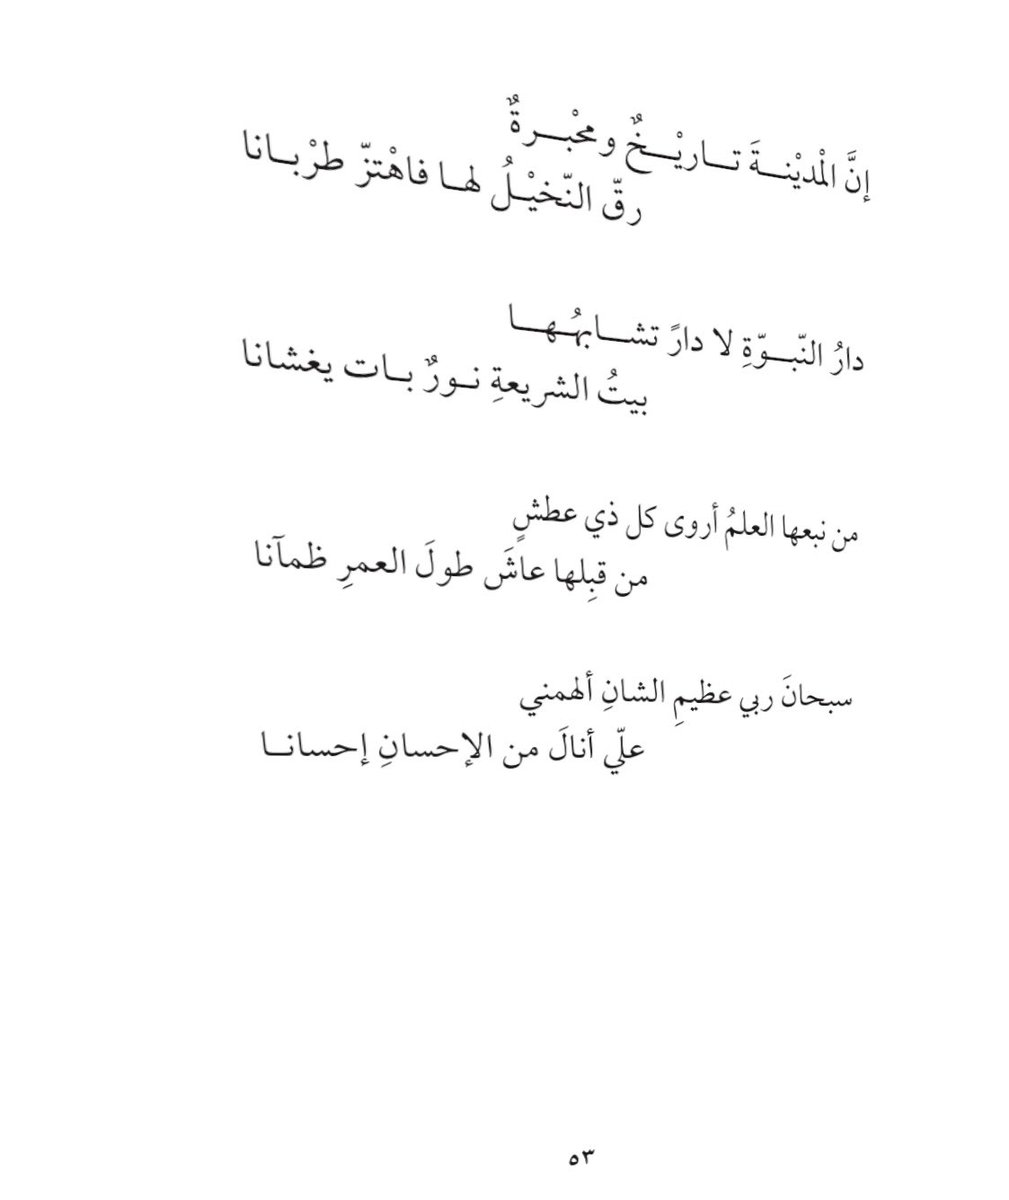 إنَّ الْمديْنـــةَ تـــاريْـــخٌ ومحْبـــرةٌ
رقّ النّخيْـلُ لهـا فاهْتزّ طرْبـانا
دارُ النّبـــوّةِ لا دارً تشـــابهُـهـــا
بيتُ الشريعةِ نـورٌ بـات يغشانا
من نبعها العلمُ أروى كل ذي عطشٍ
من قبِلها عاشَ طولَ العمرِ ظمآنا
سبحانَ ربي عظيمِ الشانِ ألهمني
علّي أنالَ من الإحسانِ إحسانــا
٥٣